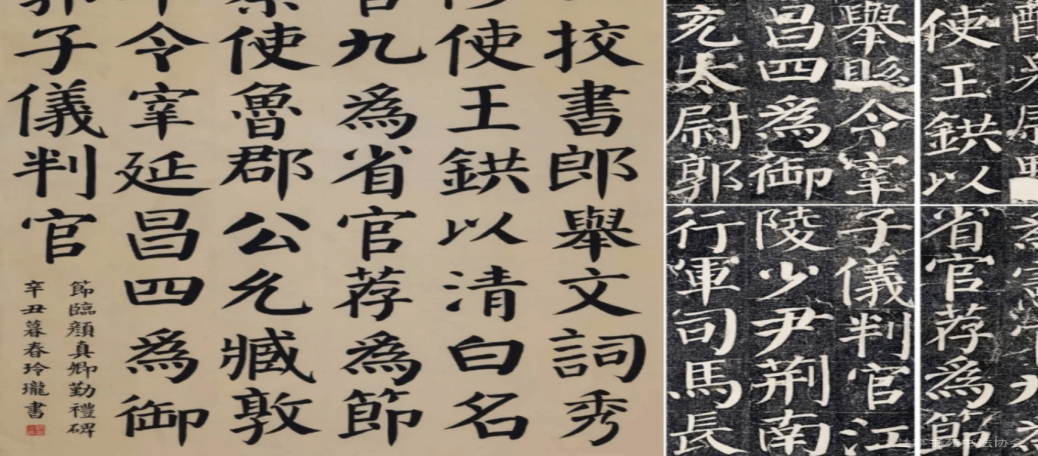 挍書郎舉文詞秀
使王鉷以清白名
九爲省官荐爲節
使魯郡公允臧敦
令宰延昌四爲御
子儀判官
節臨顏真卿勤禮碑
辛丑暮春玲瓏書
使王鉷以
舉縣令宰
昌四爲御
太尉郭
省官荐爲節
子儀判官江
陵少尹荊南
行軍司馬長